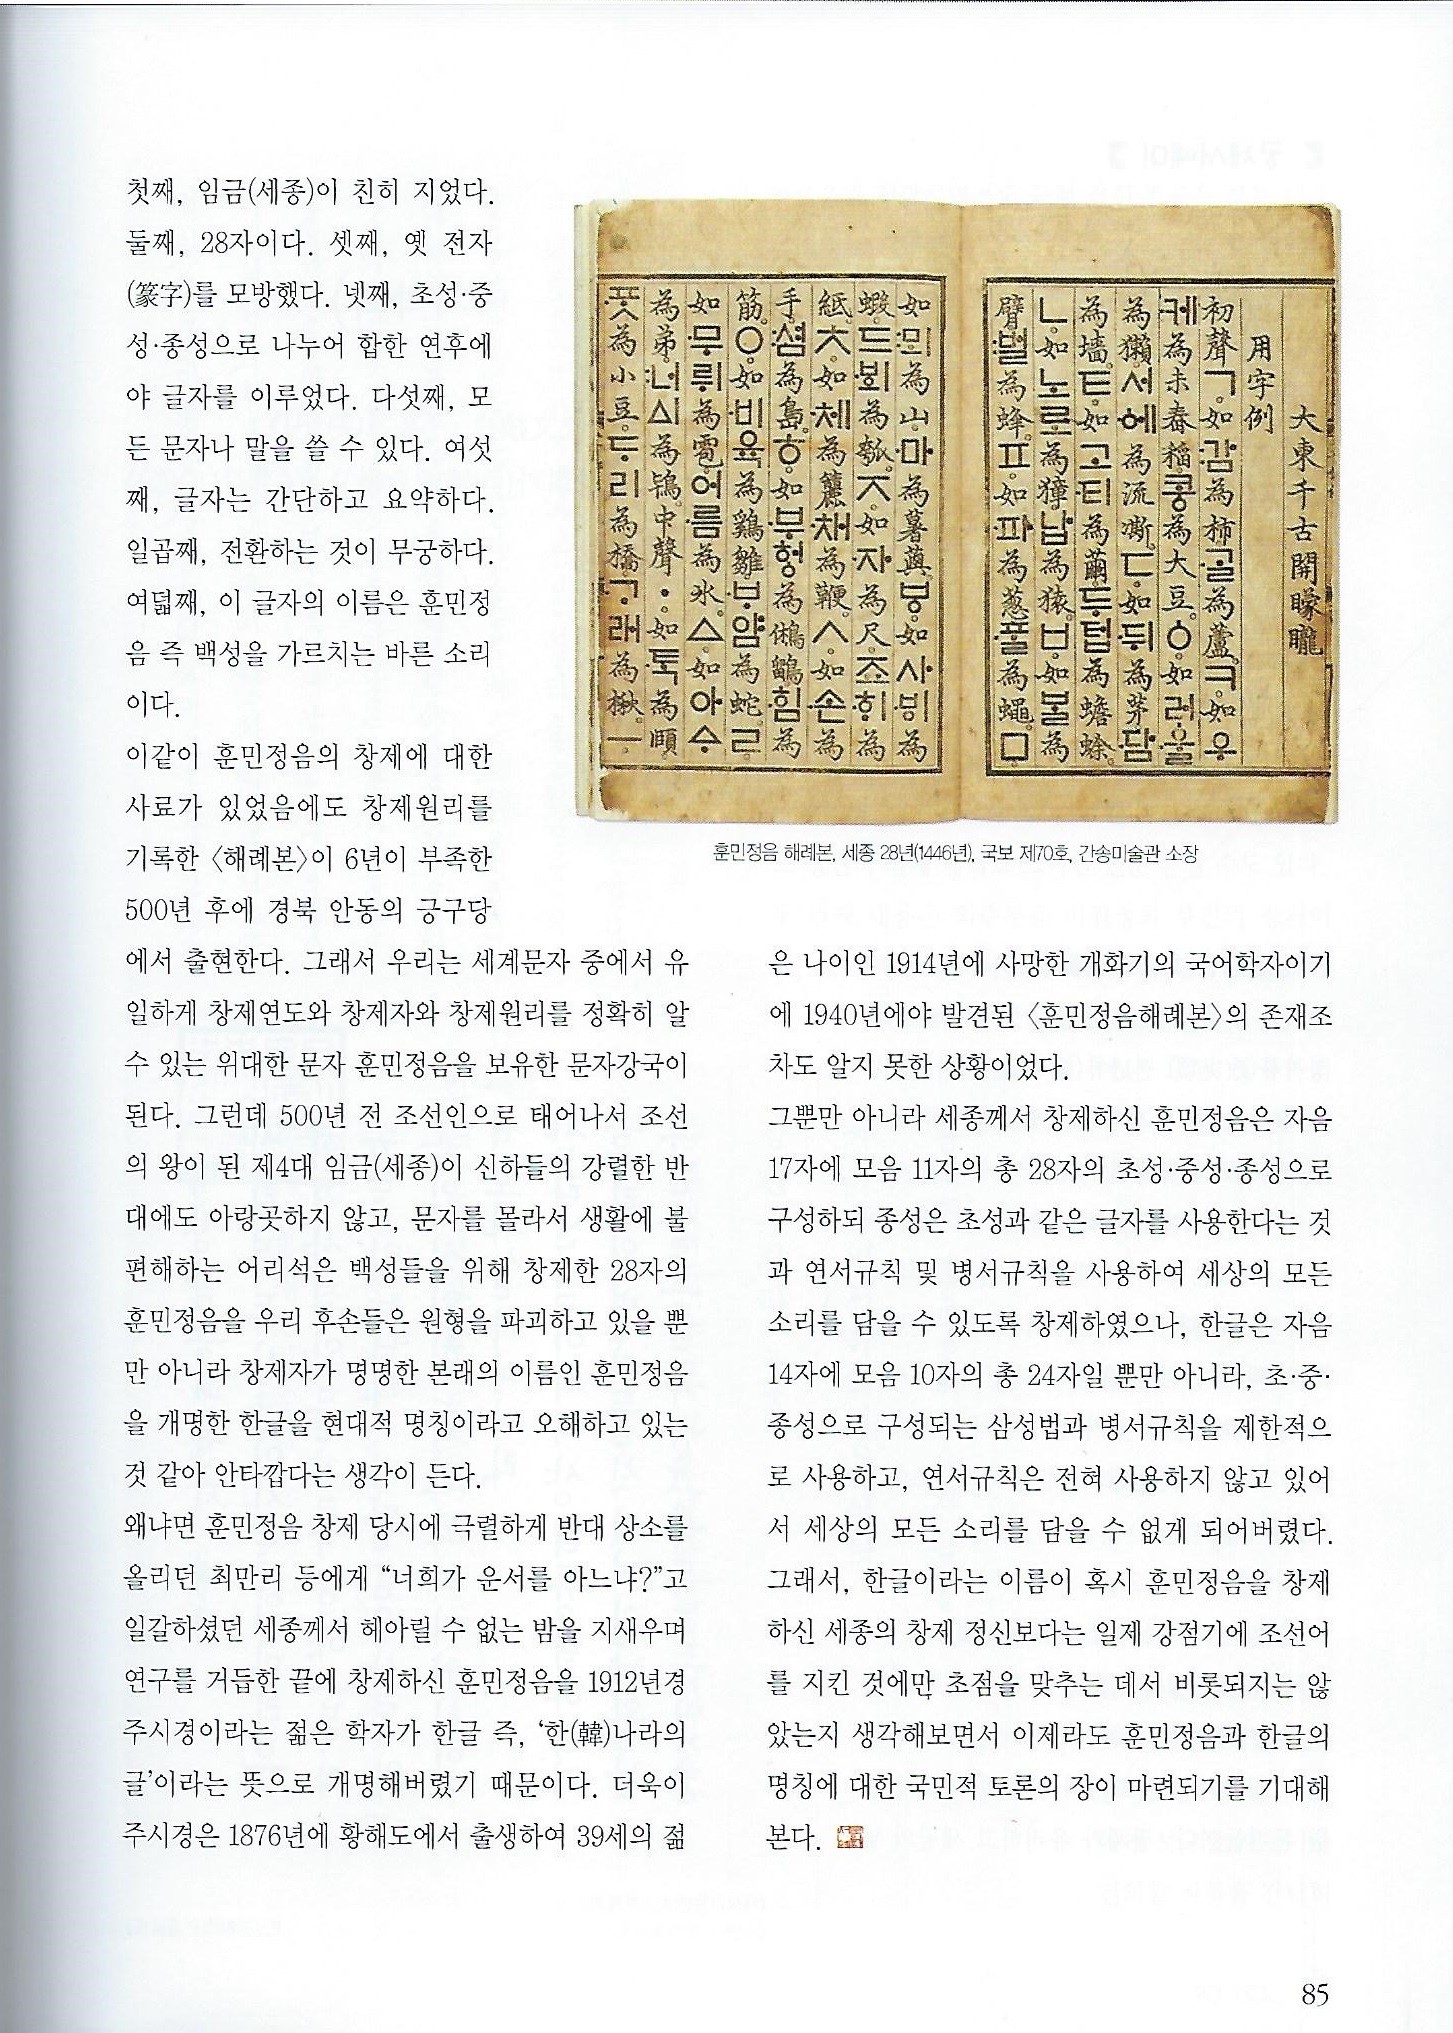 첫째, 임금(세종)이 친히 지었다.
둘째, 28자이다. 셋째, 옛 전자
(篆字)를 모방했다. 넷째, 초성·중
성·종성으로 나누어 합한 연후에
야 글자를 이루었다. 다섯째, 모
든 문자나 말을 쓸 수 있다. 여섯
째, 글자는 간단하고 요약하다.
일곱째, 전환하는 것이 무궁하다.
여덟째, 이 글자의 이름은 훈민정
음 즉 백성을 가르치는 바른 소리
이다.
이같이 훈민정음의 창제에 대한
사료가 있었음에도 창제원리를
기록한 〈해례본〉이 6년이 부족한
500년 후에 경북 안동의 긍구당
에서 출현한다. 그래서 우리는 세계문자 중에서 유
일하게 창제연도와 창제자와 창제원리를 정확히 알
수 있는 위대한 문자 훈민정음을 보유한 문자강국이
된다. 그런데 500년 전 조선인으로 태어나서 조선
의 왕이 된 제4대 임금(세종)이 신하들의 강렬한 반
대에도 아랑곳하지 않고, 문자를 몰라서 생활에 불
편해하는 어리석은 백성들을 위해 창제한 28자의
훈민정음을 우리 후손들은 원형을 파괴하고 있을 뿐
만 아니라 창제자가 명명한 본래의 이름인 훈민정음
을 개명한 한글을 현대적 명칭이라고 오해하고 있는
것 같아 안타깝다는 생각이 든다.
왜냐면 훈민정음 창제 당시에 극렬하게 반대 상소를
올리던 최만리 등에게 “너희가 운서를 아느냐?”고
일갈하셨던 세종께서 헤아릴 수 없는 밤을 지새우며
연구를 거듭한 끝에 창제하신 훈민정음을 1912년경
주시경이라는 젊은 학자가 한글 즉, ‘한(韓)나라의
글’이라는 뜻으로 개명해버렸기 때문이다. 더욱이
주시경은 1876년에 황해도에서 출생하여 39세의 젊
大東千古開矇矓
用字例
初聲ㄱ。如감為柿。ᄀᆞᆯ為蘆。ㅋ。如우
케為未舂稻。콩為大豆。ㆁ。如러ᅌᅮᆯ
為獺。서ᅌᅦ為流凘。ㄷ。如뒤為茅。담
為墻。ㅌ。如고티為繭。두텁為蟾蜍。
ㄴ。如노로為獐。납為猿。ㅂ。如ᄇᆞᆯ為
臂。벌為蜂。ㅍ。如파為葱。ᄑᆞᆯ為蠅。ㅁ。
如뫼為山。마為薯藇。ㅸ。如사ᄫᅵ為
蝦。드ᄫᅴ為瓠。ㅈ。如자為尺。죠ᄒᆡ為
紙。ㅊ。如체為簁。채為鞭。ㅅ。如손為
手。셤為島。ㅎ。如부헝為鵂鶹。힘為
筋。ㅇ。如비육為鷄雛。ᄇᆞ얌為蛇。ㄹ。
如무뤼為雹。어름為氷。ㅿ。如아ᅀᆞ
為弟。너ᅀᅵ為鴇。中聲ㆍ。如ᄐᆞᆨ為頤。
ᄑᆞᆺ為小豆。ᄃᆞ리為橋。ᄀᆞ래為楸。ㅡ。
훈민정음 해례본, 세종 28년(1446년), 국보 제70호, 간송미술관 소장
은 나이인 1914년에 사망한 개화기의 국어학자이기
에 1940년에야 발견된 〈훈민정음해례본〉의 존재조
차도 알지 못한 상황이었다.
그뿐만 아니라 세종께서 창제하신 훈민정음은 자음
17자에 모음 11자의 총 28자의 초성·중성·종성으로
구성하되 종성은 초성과 같은 글자를 사용한다는 것
과 연서규칙 및 병서규칙을 사용하여 세상의 모든
소리를 담을 수 있도록 창제하였으나, 한글은 자음
14자에 모음 10자의 총 24자일 뿐만 아니라, 초·중·
종성으로 구성되는 삼성법과 병서규칙을 제한적으
로 사용하고, 연서규칙은 전혀 사용하지 않고 있어
서 세상의 모든 소리를 담을 수 없게 되어버렸다.
그래서, 한글이라는 이름이 혹시 훈민정음을 창제
하신 세종의 창제 정신보다는 일제 강점기에 조선어
를 지킨 것에만 초점을 맞추는 데서 비롯되지는 않
았는지 생각해보면서 이제라도 훈민정음과 한글의
명칭에 대한 국민적 토론의 장이 마련되기를 기대해
본다.
85